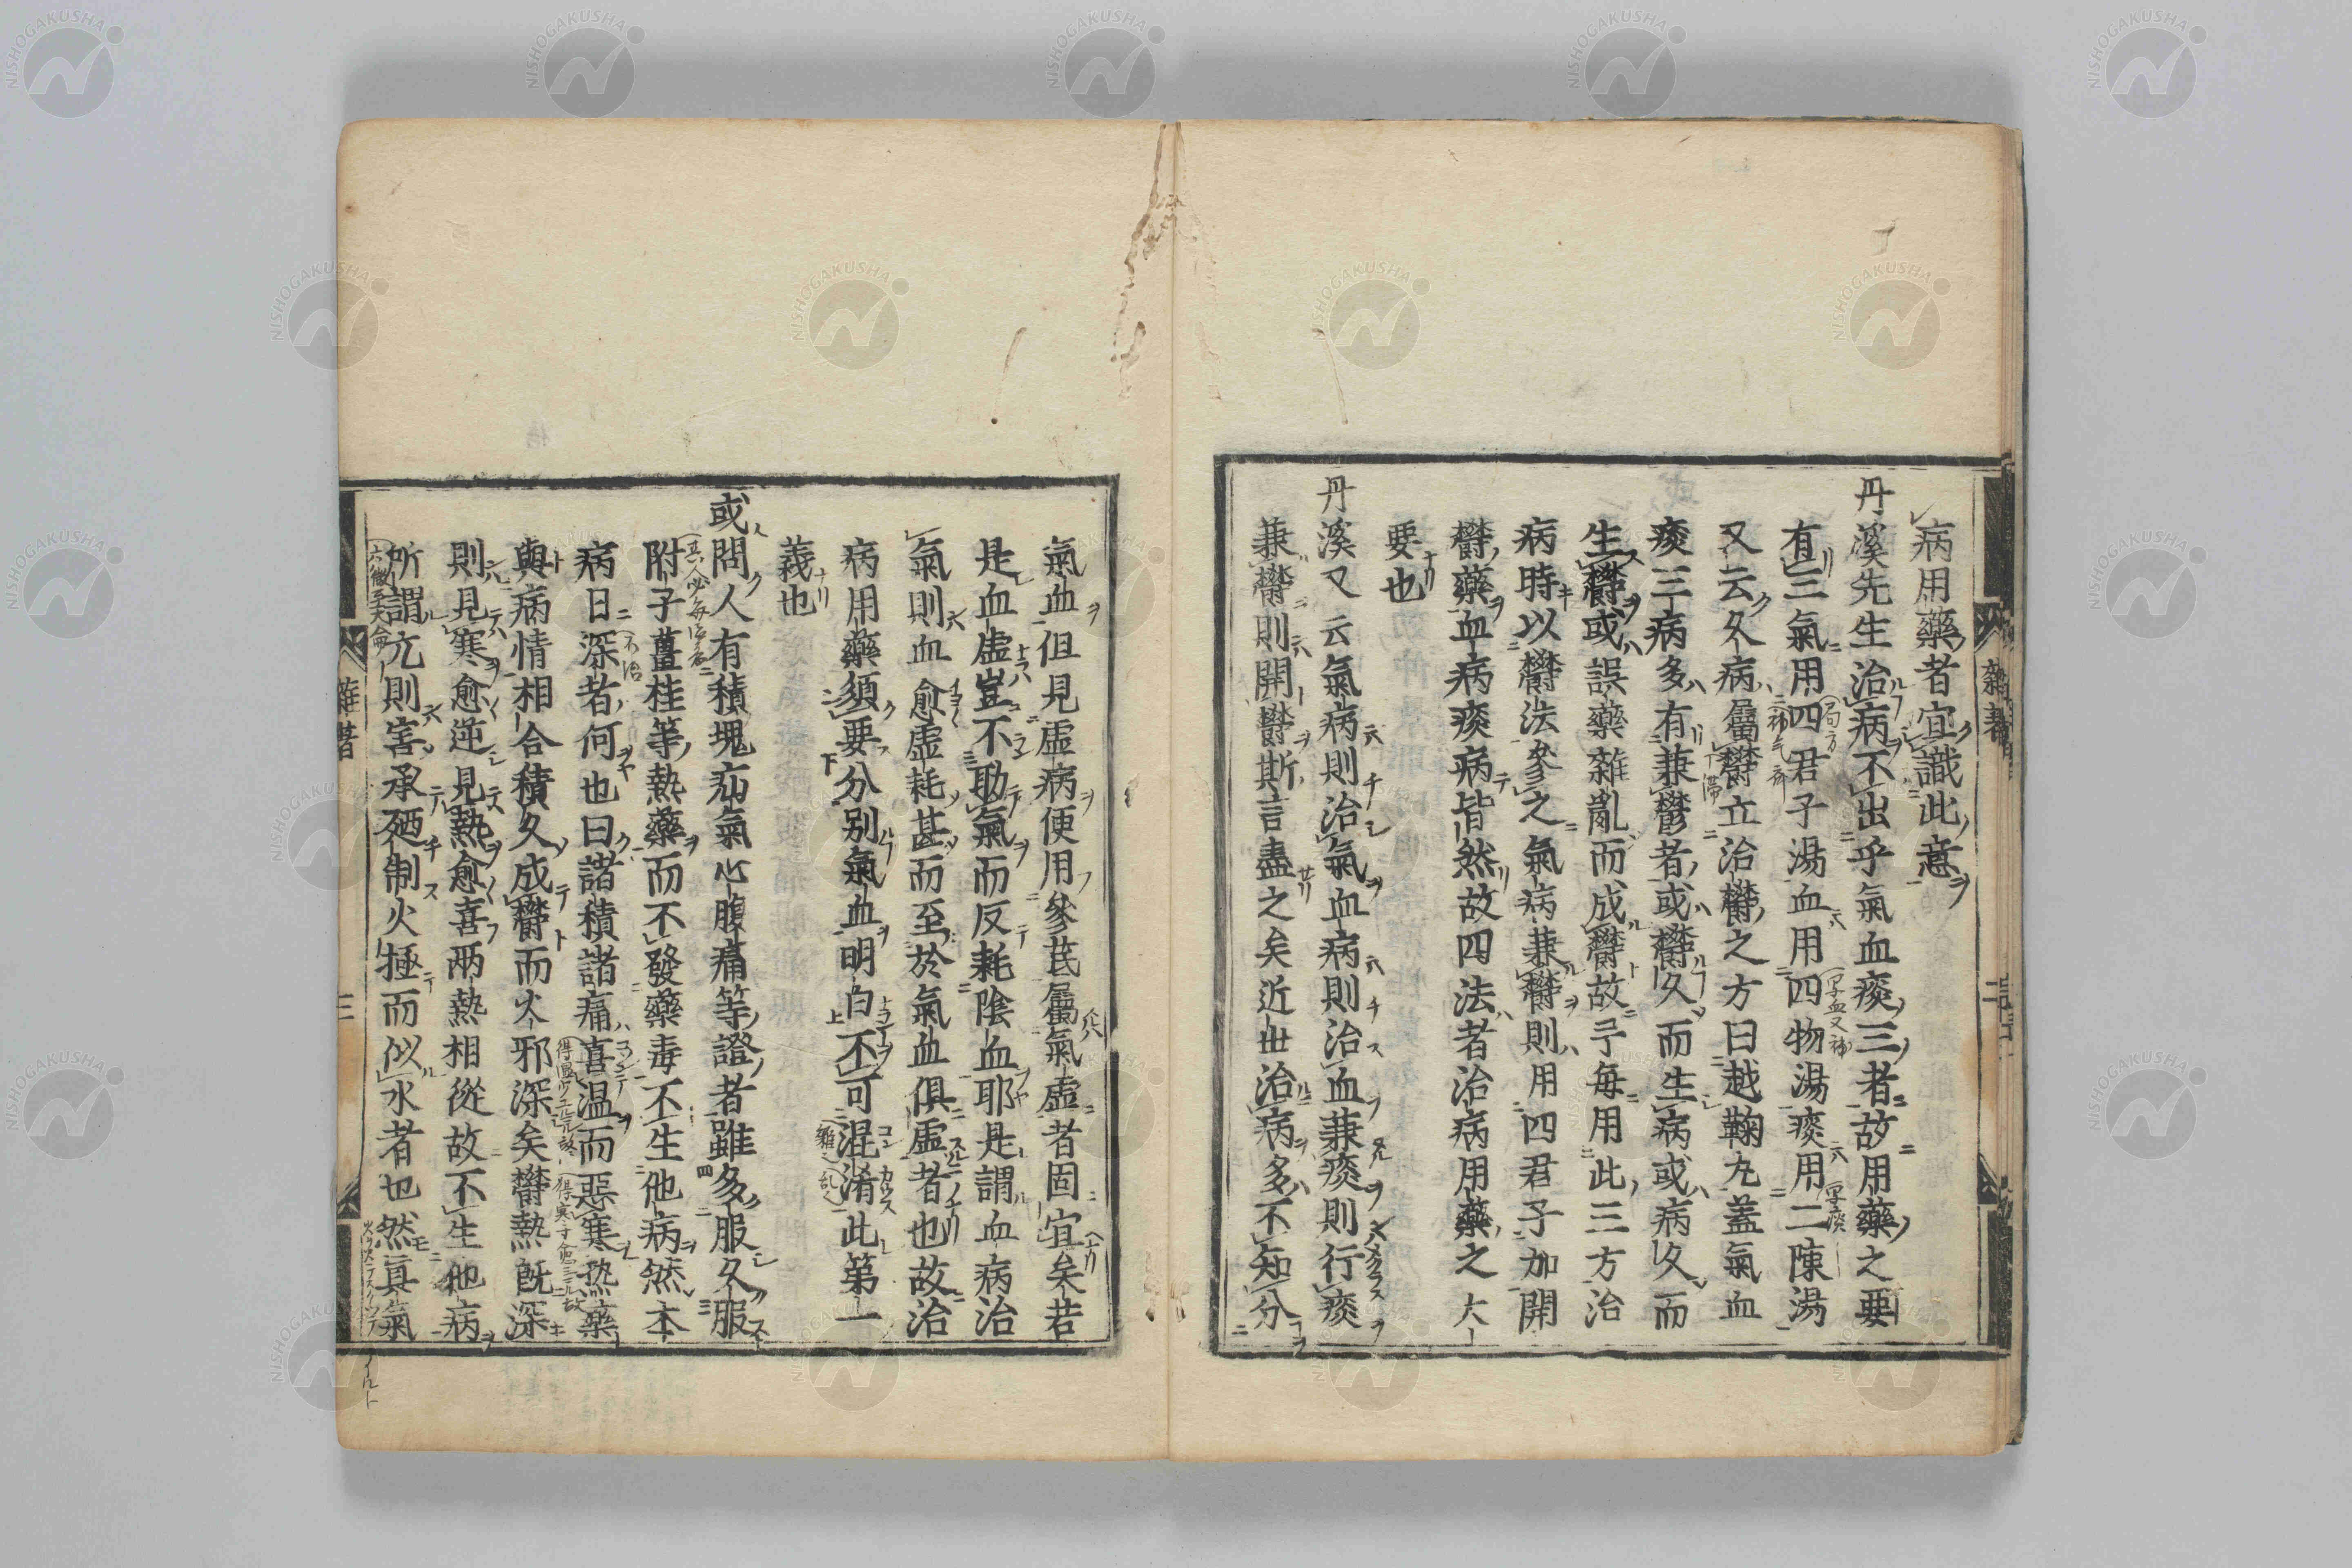 病用藥者宜識此意
丹溪先生治病不出乎氣血痰三者故用藥之要
有三氣用四君子湯血用四物湯痰用二陳湯
又云久病屬欝立治欝之方曰越鞠丸蓋氣血
痰三病多有兼鬱者或欝久而生病或病久而
生欝或誤藥雜亂而成欝故予每用此三方治
病時以欝法參之氣病兼欝則用四君子加開
欝藥血病痰病皆然故四法者治病用藥之大
要也
丹溪又云氣病則治氣血病則治血兼痰則行痰
兼欝則開鬱斯言盡之矣近世治病多不知分
氣血但見虛病便用參芪屬氣虛者固宜矣若
是血虛豈不助氣而反耗陰血耶是謂血病治
氣則血愈虛耗甚而至於氣血俱虛者也故治
病用藥須要分別氣血明白不可混淆此第一
義也
或問人有積塊疝氣心腹痛等證者雖多服久服
附子薑桂等熱藥而不發藥毒不生他病然本
病日深者何也曰諸積諸痛喜温而惡寒热藥
與病情相合積久成欝而火邪深矣欝熱既深
則見寒愈逆見熱愈喜兩熱相從故不生他病
所謂亢則害承廼制火極而似水者也然真氣
雜著
三
NISHOGAKUSHA